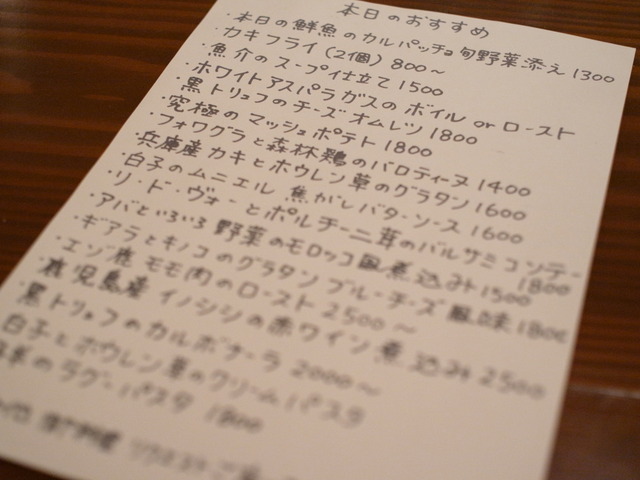 本日のおすすめ
・本日の鮮魚のカルパッチョ旬野菜添え 1300
・カキフライ(2個) 800〜
・魚介のスープ仕立て 1500
・ホワイトアスパラガスのボイル or ロースト
・黒トリュフのチーズオムレツ 1800
・究極のマッシュポテト 1800
・フォワグラと森林鶏のバロティーヌ 1400
・兵庫産カキとホウレン草のグラタン 1600
・白子のムニエル 焦がしバターソース 1600
・リ・ド・ヴォーとポルチーニ茸のバルサミコソテー 1800
・アバといろいろ野菜のモロッコ風煮込み 1500
・ギアラとキノコのグラタン ブルーチーズ風味 1800
・エゾ鹿モモ肉のロースト 2500〜
鹿児島産イノシシの赤ワイン煮込み 2500
黒トリュフのカルボナーラ 2000〜
白子とホウレン草のクリームパスタ
のラグーパスタ 1800